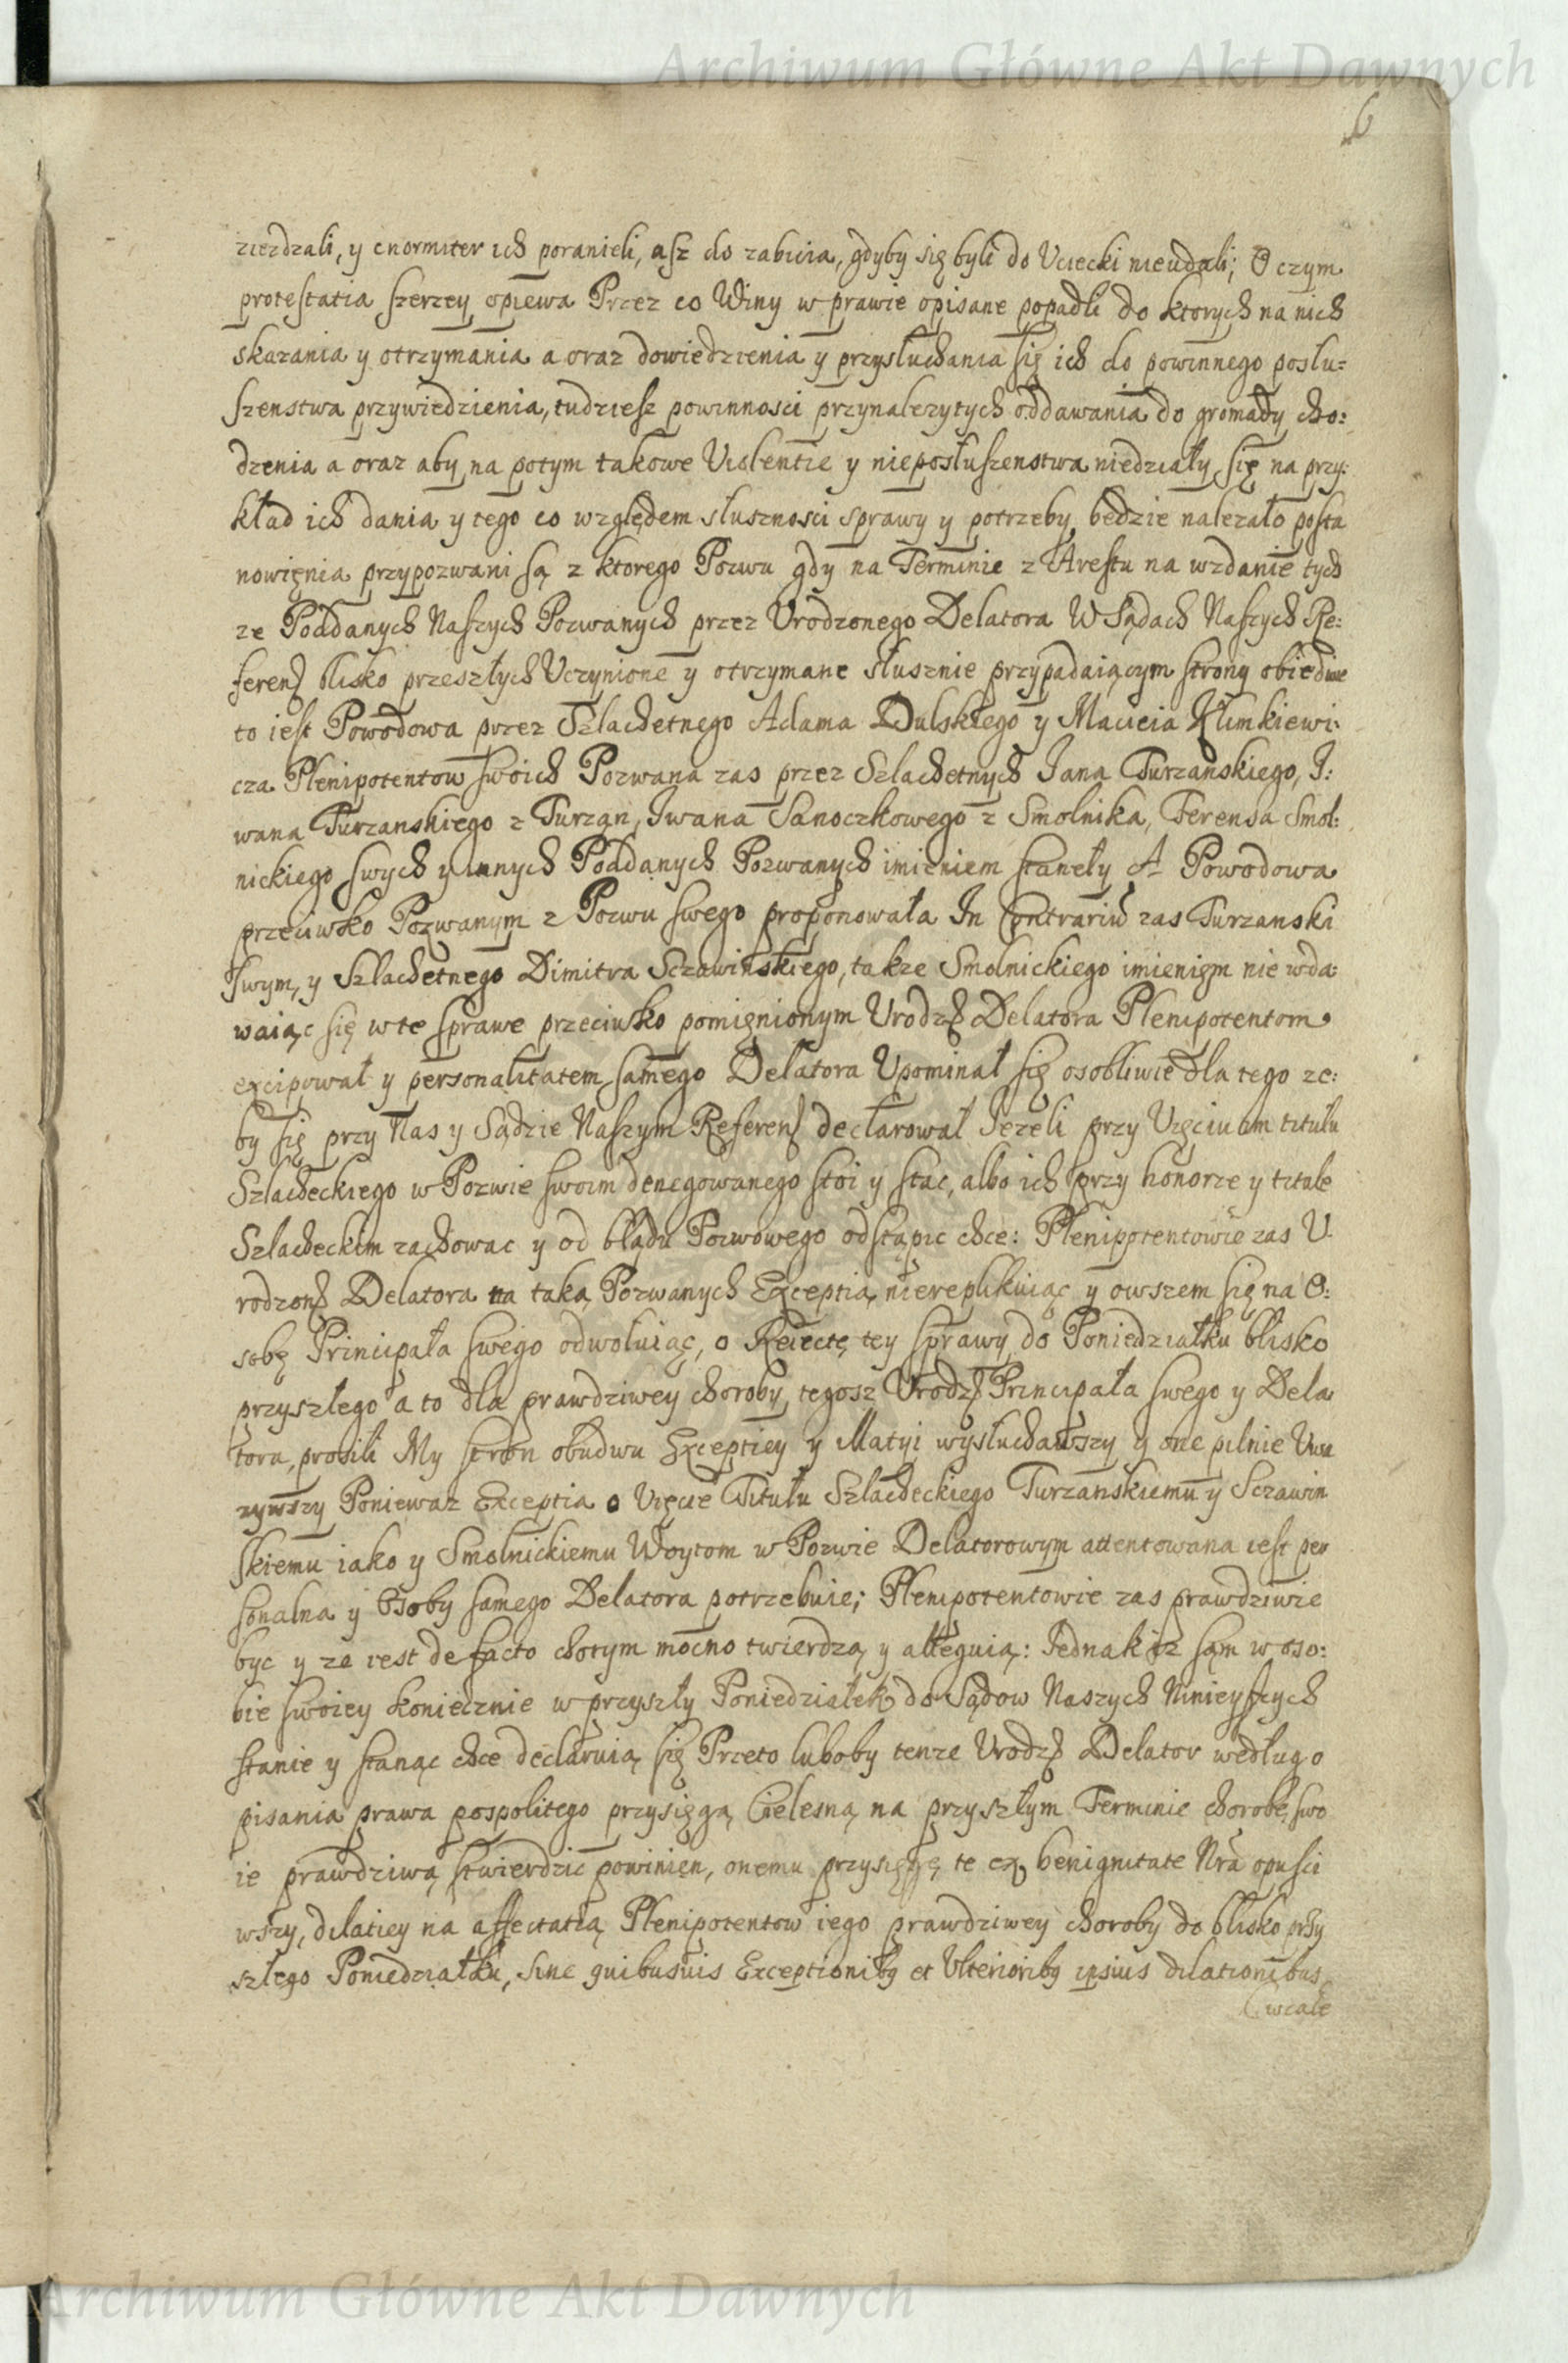 Archiwum Główne Akt Dawnych
6
ziezdzali, y enormiter ich poranieli, asz do zabicia, gdyby się byli do Uciecki nieudali; O czym
protestatia szerzey opiewa Przez co Winy w prawie opisane popadli do ktorych na nich
skazania y otrzymania a oraz dowiedzienia y przysłuchania się ich do powinnego posłu:
szenstwa przywiedzienia, tudziesz powinnosci przynalezytych oddawania do gromady cho:
dzenia a oraz aby na potym takowe Violentie y nieposłuszenstwa niedziały się na przy:
kład ich dania y tego co względem słusznosci sprawy y potrzeby będzie nalezało posta
nowięnia przypozwani są z ktorego Pozwu gdy na Terminie z Arestu na wzdanie tych
ze Poddanych Naszych Pozwanych przez Urodzonego Delatora W Sądach Naszych Re:
ferens blisko przeszłych Uczynione y otrzymane słusznie przypadaiącym strony obiedwie
to iest Powodowa przez Szlachetnego Adama Dulskiego y Macieia Klimkiewi:
cza Plenipotentow swoich Pozwana zas przez Szlachetnych Jana Turzanskiego, I:
wana Turzanskiego z Turzan, Iwana Sanoczkowego z Smolnika, Ferensa Smol:
nickiego swych y innych Poddanych Pozwanych imieniem staneły A Powodowa
przeciwko Pozwanym z Pozwu swego proponowała In Contrariũ zas Turzanski
swym, y Szlachetnego Dimitra Sczawinskiego, takze Smolnickiego imienięm nie wda
waiąc się w te sprawe przeciwko pomięnionym Urodzs Delatora Plenipotentom
excipował y personalitatem samego Delatora Upominał się osobliwie dla tego ze:
by się przy Nas y Sądzie Naszym Referens declarował Jezeli przy Uięciu im titułu
Szlacheckiego w Pozwie swoim denegowanego stoi y stac, albo ich przy honorze y titule
Szlacheckim zachowac y od błądu Pozwowego odstąpic chce: Plenipotentowie zas U
rodzons Delatora na taką Pozwanych Exceptią niereplikuiąc y owszem się na O:
sobę Principała swego odwołuiąc, o Reiectę tey sprawy do Poniedziałku blisko
przyszłego a to dla prawdziwey choroby tegosz Urodzs Principała swego y Dela
tora, prosili My stron obudwu Exceptiey y Matyi wysłuchawszy y one pilnie Uwa
zywszy Poniewaz Exceptia o Uięcie Titułu Szlacheckiego Turzanskiemu y Sczawin
skiemu iako y Smolnickiemu Woytom w Pozwie Delatorowym attentowana iest per
sonalna y Osoby samego Delatora potrzebuie; Plenipotentowie zas prawdziwie
byc y ze iest de facto chorym mocno twierdzą y alleguią: Jednak iz sąm w oso:
bie swoiey koniecznie w przyszły Poniedziałek do Sądow Naszych Ninieyszych
stanie y stanąc chce declaruią się Przeto luboby tenze Urodzs Delator według o
pisania prawa pospolitego przysięgą Cielesną na przyszłym Terminie chorobę swo
ie prawdziwą stwierdzic powinien, onemu przysięgę te ex benignitate Nra opusci
wszy, dilatiey na affectatią Plenipotentow iego prawdziwey choroby do blisko przy
szłego Poniedziałku, sine quibusuis Exceptionibq et Ulterioribq ipsius dilationibus
wcale
Archiwum Główne Akt Dawnych